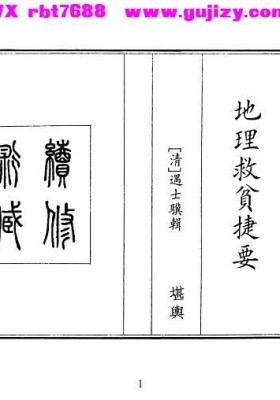 VX rbt7688 www.gujizy.com
地理救貧捷要
[清]遇士驥輯 堪輿
續修
1